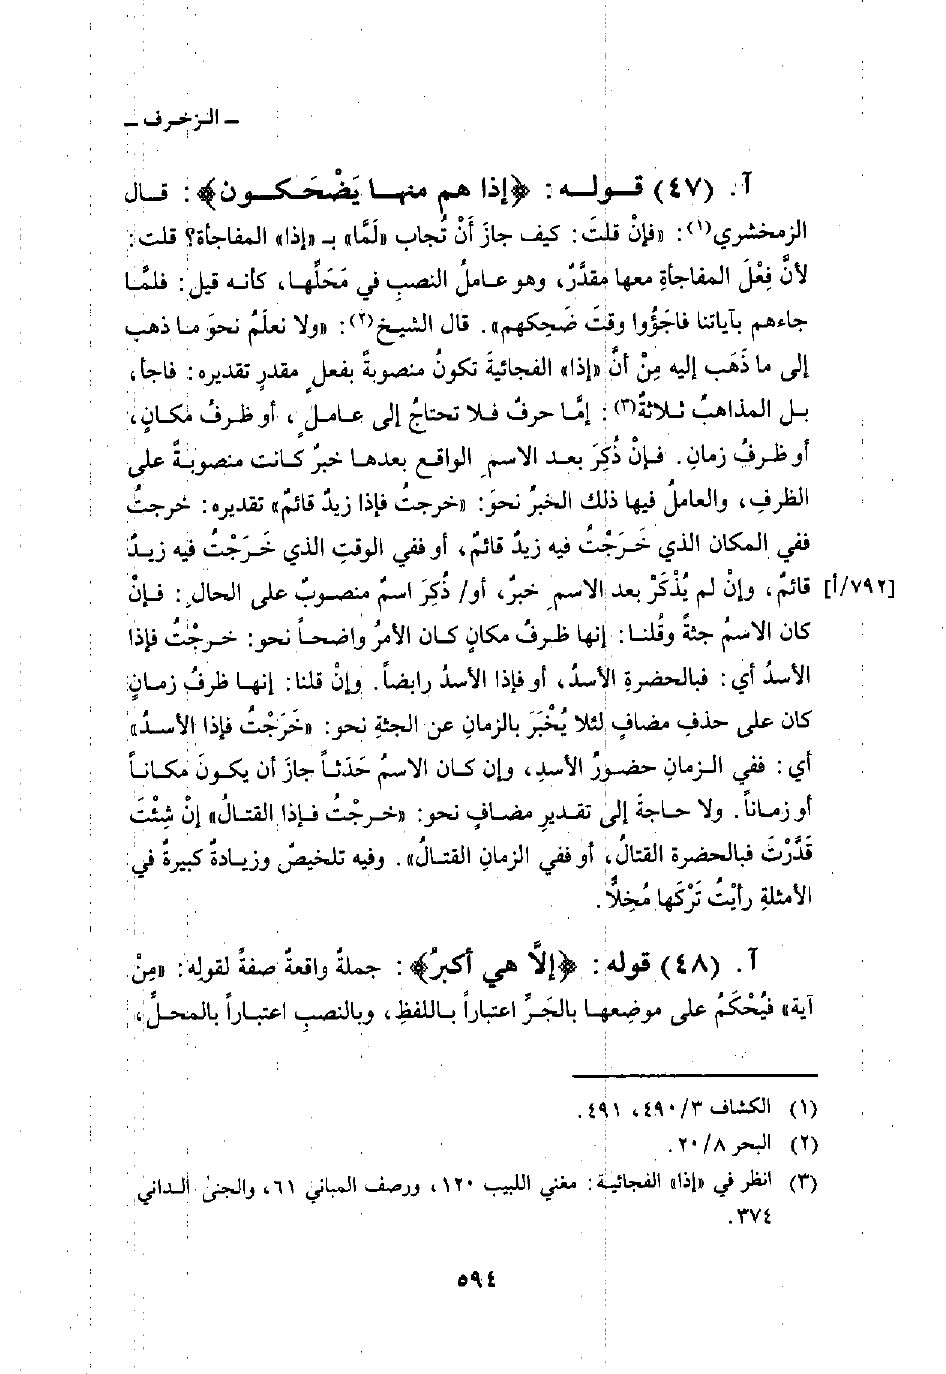 ـ الـزخرف ـ
آ. (٤٧) قـولـه: ﴿إذا هم منهـا يَضْحَكـون﴾: قـال
الزمخشري(١): «فإنْ قلتَ: كيف جازَ أَنْ تُجاب «لَمَّا» بـ «إذا» المفاجأة؟ قلت:
لأنَّ فِعْلَ المفاجأةِ معها مقدَّرٌ، وهو عاملُ النصبِ في مَحَلِّهـا، كأنـه قيل: فلمَّـا
جاءهم بآياتنا فاجَؤُوا وقتَ ضَحِكهم». قال الشيخ(٢): «ولا نعلَمُ نحوَ مـا ذهب
إلى ما ذَهَب إليه مِنْ أنَّ «إذا» الفجائيةَ تكونُ منصوبةً بفعلٍ مقدرٍ تقديره: فاجأ،
بـل المذاهبُ ثـلاثةٌ(٣): إمَّـا حرفٌ فـلا تحتاجُ إلى عـامـلٍ، أو ظـرفُ مكـانٍ،
أو ظـرفُ زمانٍ. فـإنْ ذُكِرَ بعـد الاسمِ الواقـع بعدهـا خبرٌ كـانت منصوبـةً على
الظرفِ، والعاملُ فيها ذلك الخبرُ نحوَ: «خرجتُ فإذا زيدٌ قائمٌ» تقديره: خرجتُ
ففي المكان الذي خَـرَجْتُ فيه زيدٌ قائمٌ، أو ففي الوقتِ الذي خَـرَجْتُ فيه زيـدٌ
[٧٩٢/أ] قائمٌ، وإنْ لم يُذْكَرْ بعد الاسمِ خبرٌ، أو/ ذُكِرَ اسمٌ منصوبٌ على الحالِ: فـإنْ
كان الاسمُ جثةً وقُلنـا: إنها ظرفُ مكانٍ كـان الأمرُ واضحـاً نحو: خـرجْتُ فإذا
الأسدُ أي: فبالحضرةِ الأسدُ، أو فإذا الأسدُ رابضاً. وإنْ قلنا: إنهـا ظرفُ زمـانٍ
كان على حذفِ مضافٍ لئلا يُخْبَرَ بالزمانِ عن الجثةِ نحو: «خَرَجْتُ فإذا الأسـدُ»
أي: ففي الـزمانِ حضـورُ الأسدِ، وإن كـان الاسمُ حَدَثـاً جازَ أن يكـونَ مكـانـاً
أو زمـاناً. ولا حـاجةَ إلى تقـديرِ مضـافٍ نحو: «خـرجْتُ فـإذا القتـالُ» إنْ شِئْتَ
قَدَّرْتَ فبالحضرة القتالُ، أو ففي الزمانِ القتـالُ». وفيه تلخيصٌ وزيـادةٌ كبيرةٌ في
الأمثلةِ رأيْتُ تَرْكَها مُخِلاًّ.
آ. (٤٨) قوله: ﴿إلاَّ هي أكبرُ﴾: جملةٌ واقعةٌ صفةً لقوله: «مِنْ
آية» فيُحْكَمُ على موضعِهـا بالجَرِّ اعتباراً بـاللفظِ، وبالنصبِ اعتبـاراً بالمحـلِّ،
(١) الكشاف ٣/٤٩٠، ٤٩١.
(٢) البحر ٨/٢٠.
(٣) انظر في «إذا» الفجائيـة: مغني اللبيب ١٢٠، ورصف المباني ٦١، والجنى الـداني
٣٧٤.
٥٩٤